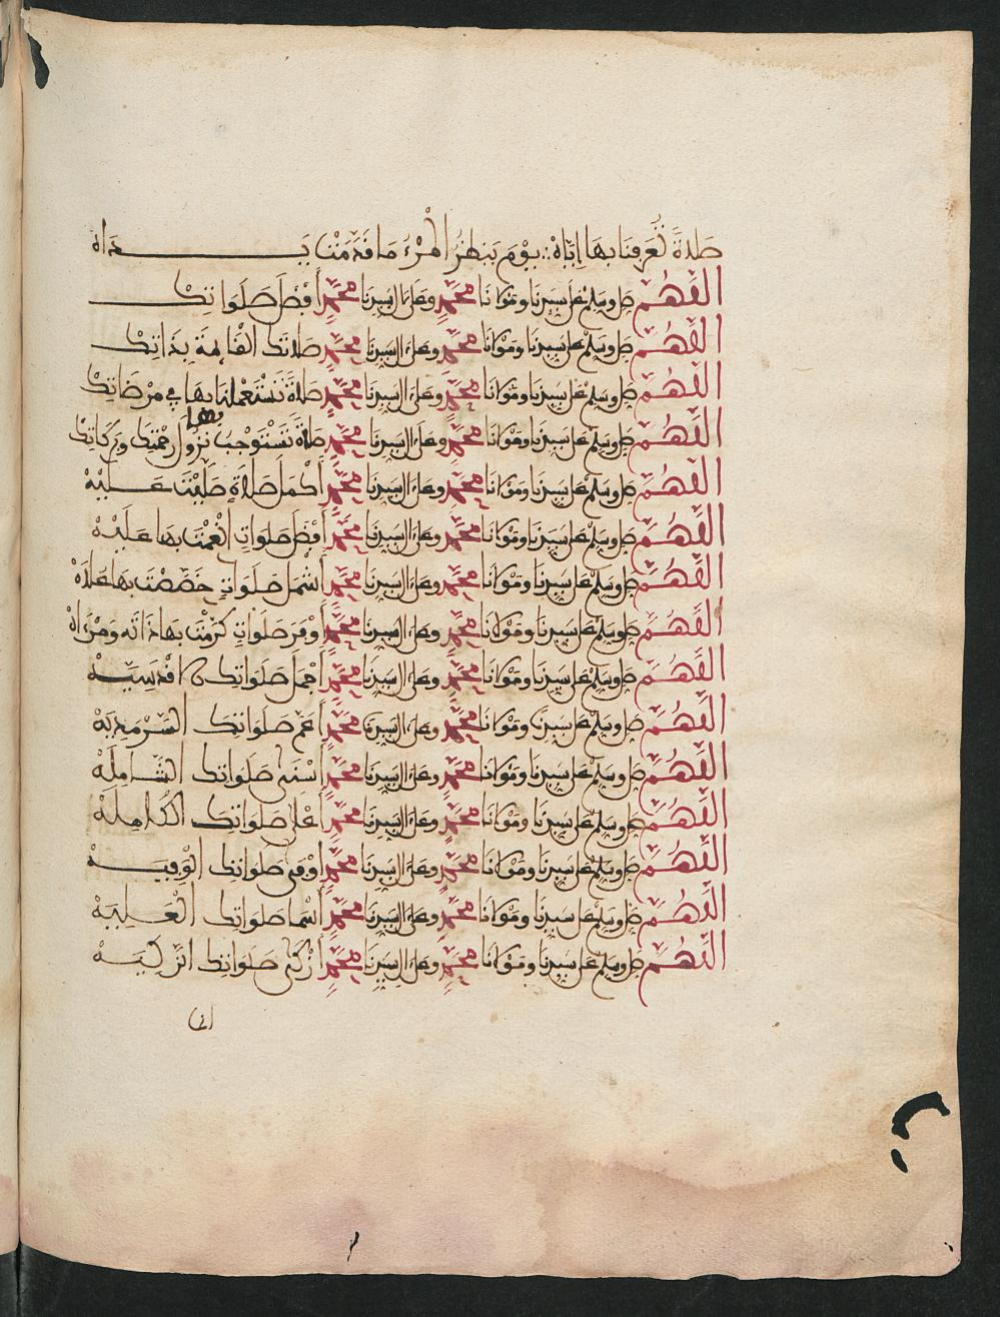 صلاة تعرفنا بها إياه ∴ يوم ينظر المرء ما قدمت يداه
اللهم صل وسلم على سيدنا ومولانا محمد وعلى ءال سيدنا محمد أفضل صلواتك
اللهم صل وسلم على سيدنا ومولانا محمد وعلى ءال سيدنا محمد صلاتك القائمة بذاتك
اللهم صل وسلم على سيدنا ومولانا محمد وعلى ءال سيدنا محمد صلاة تستعملنا بها في مرضاتك
اللهم صل وسلم على سيدنا ومولانا محمد وعلى ءال سيدنا محمد صلاة نستوجب بها نزول رحمتك وبركاتك
اللهم صل وسلم على سيدنا ومولانا محمد وعلى ءال سيدنا محمد أكمل صلاة صليت عليه
اللهم صل وسلم على سيدنا ومولانا محمد وعلى ءال سيدنا محمد أفضل صلوات أنعمت بها عليه
اللهم صل وسلم على سيدنا ومولانا محمد وعلى ءال سيدنا محمد أشمل صلوات خصصت بها علاه
اللهم صل وسلم على سيدنا ومولانا محمد وعلى ءال سيدنا محمد أوفر صلوات كرمت بها ذاته
اللهم صل وسلم على سيدنا ومولانا محمد وعلى ءال سيدنا محمد أجمل صلواتك الاقدسيه
اللهم صل وسلم على سيدنا ومولانا محمد وعلى ءال سيدنا محمد أعم صلواتك السرمديه
اللهم صل وسلم على سيدنا ومولانا محمد وعلى ءال سيدنا محمد أسنى صلواتك الشامله
اللهم صل وسلم على سيدنا ومولانا محمد وعلى ءال سيدنا محمد أعلى صلواتك الكامله
اللهم صل وسلم على سيدنا ومولانا محمد وعلى ءال سيدنا محمد أوفى صلواتك الوفيه
اللهم صل وسلم على سيدنا ومولانا محمد وعلى ءال سيدنا محمد أسما صلواتك العليه
اللهم صل وسلم على سيدنا ومولانا محمد وعلى ءال سيدنا محمد أزكى صلواتك الزكيه